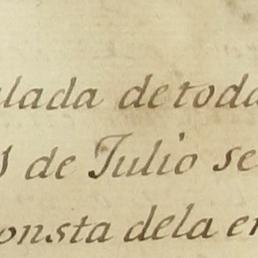 lada de toda
de Julio se
onsta dela en